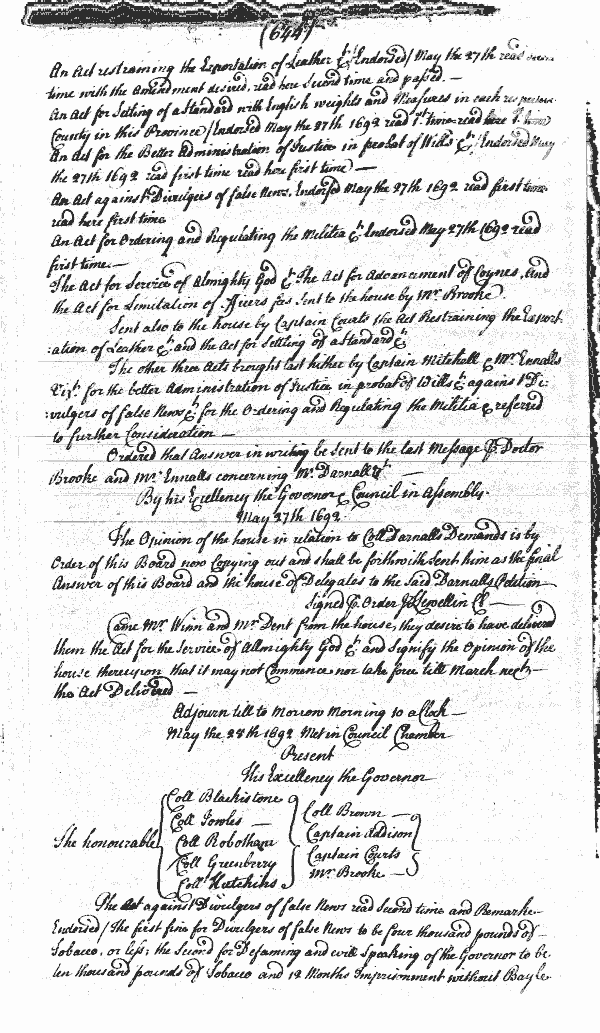 (644)
An Act restraining the Exportation of Leather &c. Endorsed/ May the 27th read
time with the Amendment desired, read here Second time and passed. —
An Act for Setling of a Standard with English weights and Measures in each respective
County in this Province/ Endorsed May the 27th 1692 read 1st. time read here 1. time
An act for the Better Administration of Justice in probat of Wills &c. Endorsed May
the 27th 1692 read first time read here first time) —
An Act against Divulgers of false News. Endorsed May the 27th 1692 read first time
read here first time
An Act for Ordering and Regulating the Militia &c. Endorsed May 27th 1692 read
first time. —
The Act for Service of Almighty God &c The Act for Advancement of Coynes, And
the Act for Limitation of Officers fees Sent to the house by Mr. Brooke.
Sent also to the house by Captain Courts the Act Restraining the Export-
:ation of Leather &c. and the Act for Settling of a Standard &c
The other three Acts brought last hither by Captain Mitchell & Mr. Ennalls
Vizt. for the better Administration of Justice in probat of Wills &c. against the Di:
:vulgers of false News &c for the Ordering and Regulating the Militia & referred
to further Consideration —
Ordered that Answer in writing be Sent to the last Message by Doctor
Brooke and Mr. Ennalls concerning Mr. Darnall &c. —
By his Excellency the Governor & Council in Assembly.
May 27th 1692.
The Opinion of the house in relation to Coll Darnalls Demands is by
Order of this Board now Copying out and shall be forthwith Sent him as the final
Answer of this Board and the house of Delegates to the Said Darnalls Petition
Signed p. Order J Llewellin Cl —
Came Mr. Winn and Mr. Dent from the house, they desire to have delivered
them the Act for the Service of Allmighty God &c and Signify the Opinion of the
house thereupon that it may not Commence nor take force till March next —
the Act Delivered —
Adjourn till to Morrow Morning 10 a Clock —
May the 28th 1692 Met in Council Chamber
Present
His Excellency the Governor
The honourable
Coll Blackistone
Coll Jowles —
Coll Robotham
Coll Greenberry
Coll Hutchins
Coll Brown —
Captain Addison
Captain Courts
Mr. Brooke —
The Act against Divulgers of false News read Second time and Remarke
Endorsed/ The first fine for Divulgers of false News to be four thousand pounds of
Tobacco, or less; the Second for Defaming and evill Speaking of the Governor to be
ten thousand pounds of Tobacco and 12 Months Imprisonment without Bayle